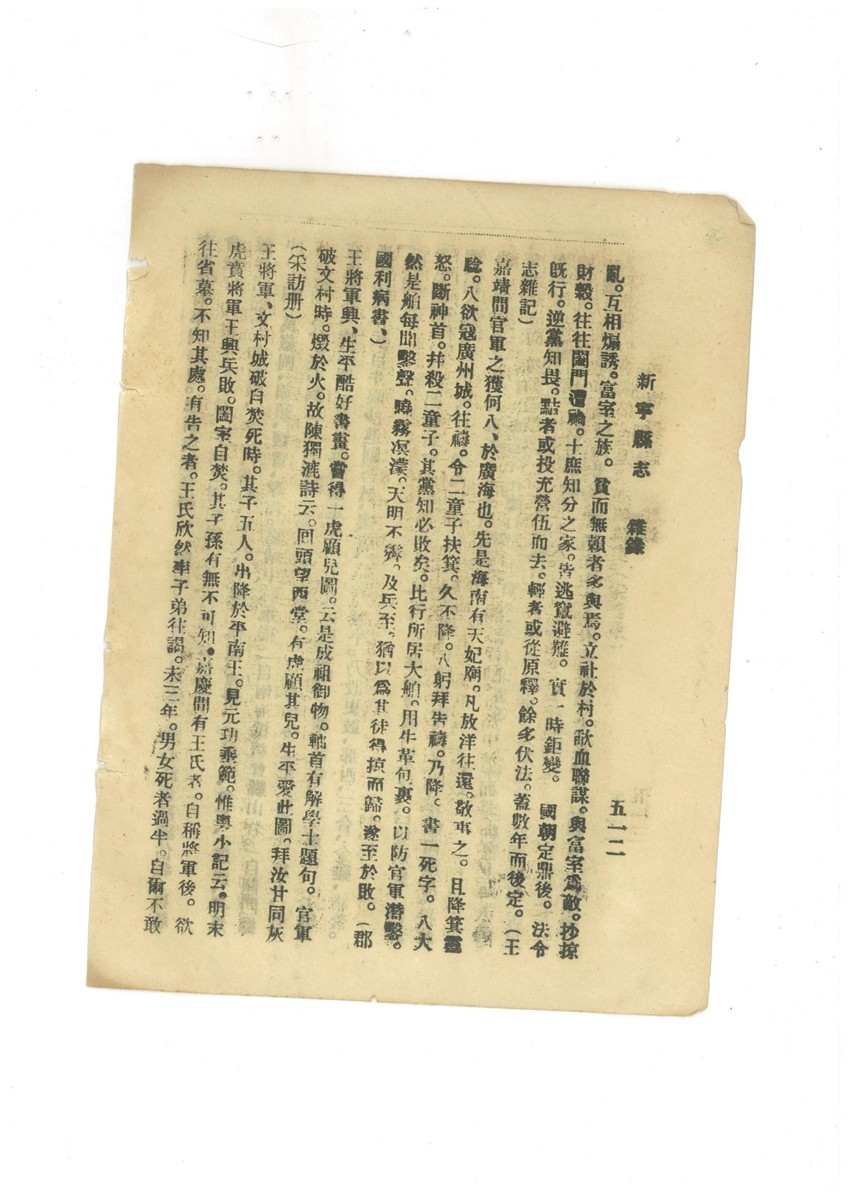 新寧縣志　雜錄　五一二
亂。互相煽誘。富室之族。貧而無賴者多與焉。立社於村。歃血聯謀。與富室爲敵。抄掠
財穀。往往闔門遭禍。士庶知分之家。皆逃竄避難。實一時鉅變。　國朝定鼎後。法令
旣行。逆黨知畏。黠者或投充營伍而去。輕者或從原釋。餘多伏法。蓋數年而後定。（王
志雜記）
嘉靖間官軍之獲何八、於廣海也。先是海南有天妃廟。凡放洋往還。敬事之。且降箕靈
騐。八欲寇廣州城。往禱。令二童子扶箕。久不降。八躬拜告禱。乃降。書一死字。八大
怒。斷神首。幷殺二童子。其黨知必敗矣。比行所居大舶。用牛革包裹。以防官軍潛鑿。
然是舶每聞鑿聲。曉霧溟濛。天明不霽。及兵至。猶以爲其徒得掠而歸。遂至於敗。（郡
國利病書、）
王將軍興、生平酷好書畫。嘗得一虎顧兒圖。云是成祖御物。軸首有解學士題句。官軍
破文村時。燬於火。故陳獨漉詩云。回頭望西堂。有虎顧其兒。生平愛此圖。拜汝甘同灰
（采訪册）
王將軍、文村城破自焚死時。其子五人。出降於平南王。見元功垂範。惟粵小記云。明末
虎賁將軍王興兵敗。闔室自焚。其子孫有無不可知。嘉慶間有王氏者。自稱將軍後。欲
往省墓。不知其處。有告之者。王氏欣然率子弟往謁。未三年。男女死者過半。自爾不敢